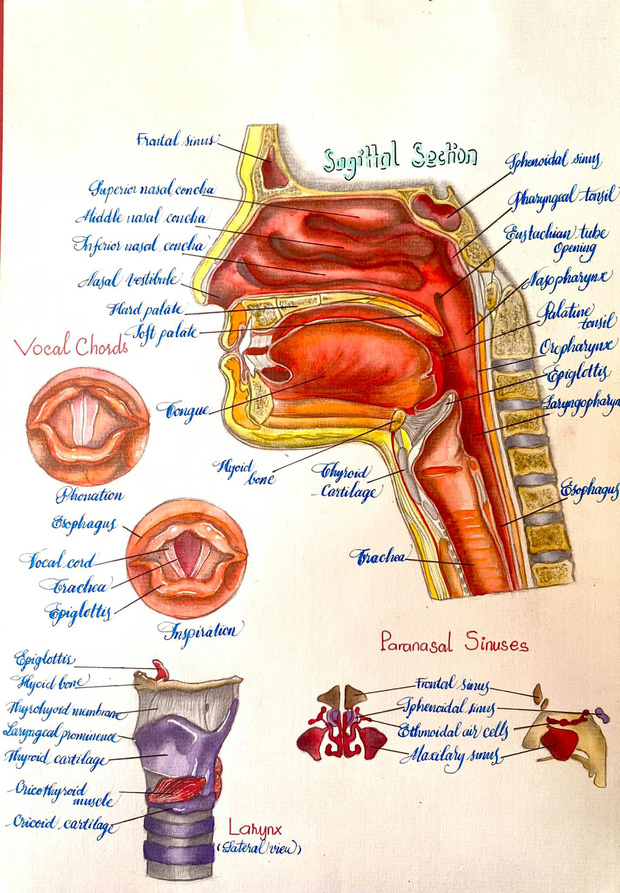 Sagittal Section
Frontal sinus
Superior nasal concha
Middle nasal concha
Inferior nasal concha
Nasal vestibule
Hard palate
Soft palate
Tongue
Hyoid
bone
Thyroid
Cartilage
Trachea
Sphenoidal sinus
Pharyngeal tonsil
Eustachian tube
Opening
Nasopharynx
Palatine
tonsil
Oropharynx
Epiglottis
Laryngopharyn
Esophagus
Vocal Chords
Phonation
Esophagus
Vocal cord
Trachea
Epiglottis
Inspiration
Epiglottis
Hyoid bone
Thyrohyoid membrane
Laryngeal prominence
Thyroid cartilage
Cricothyroid
muscle
Cricoid cartilage
Larynx
(Lateral view)
Paranasal Sinuses
Frontal sinus
Sphenoidal sinus
Ethmoidal air cells
Maxilary sinus